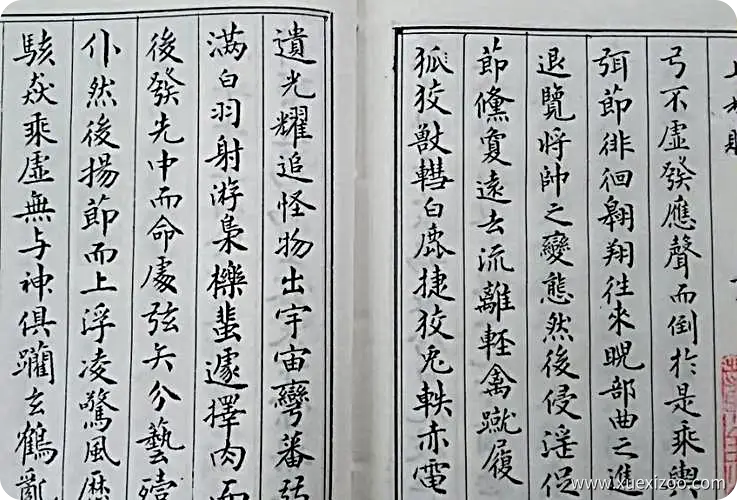 弓不虛發應聲而倒於是乘輿
弭節徘徊翱翔往來睨部曲之進
退覽將帥之變態然後侵淫促
節儵夐遠去流離輕禽蹴履
狐狡獸轊白鹿捷狡兔軼赤電
遺光耀追怪物出宇宙彎蕃弱
滿白羽射游梟櫟蜚遽擇肉而
後發先中而命處弦矢分藝殪
仆然後揚節而上浮凌驚風歷
駭焱乘虛無与神俱躪玄鶴亂
www.xuexizoo.com